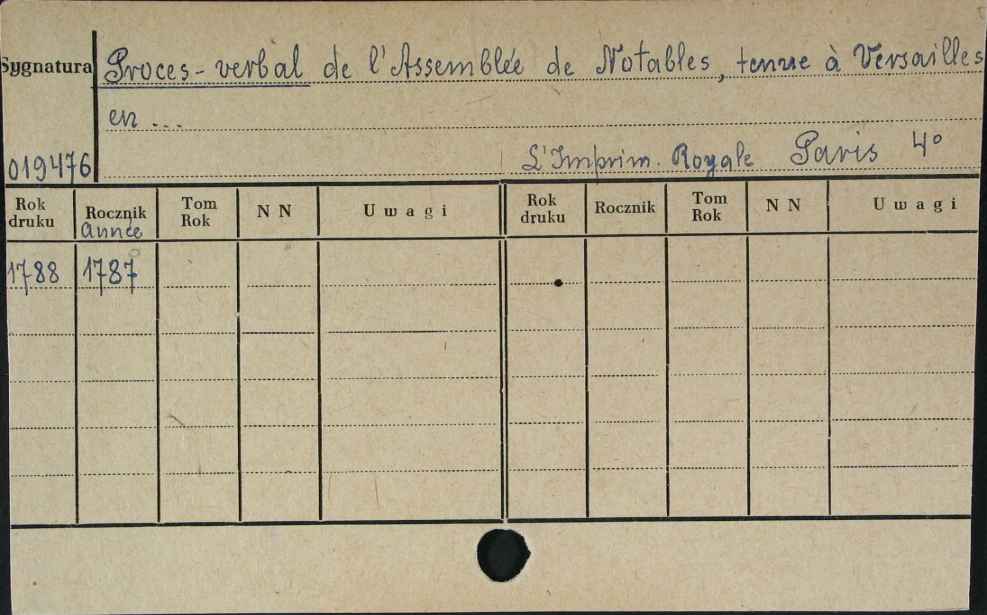 Sygnatura Proces-verbal de l'Assemblée de Notables, tenue à Versailles
en ...
019476 L'Imprim. Royale Paris 4°
Rok druku Rocznik Année Tom Rok N N Uwagi Rok druku Rocznik Tom Rok N N Uwagi
1788 1787